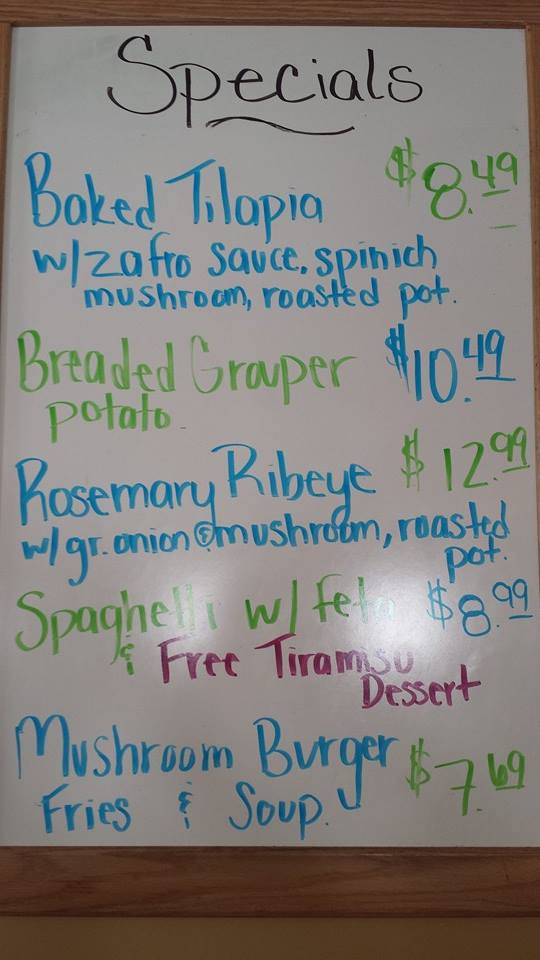 Specials
Baked Tilapia $8.49
w/zafro sauce, spinich
mushroom, roasted pot.
Breaded Grouper $10.49
potato.
Rosemary Ribeye $12.99
w/gr. onion & mushroom, roasted
pot.
Spaghetti w/ feta $8.99
& Free Tiramisu
Dessert
Mushroom Burger $7.69
Fries & Soup.